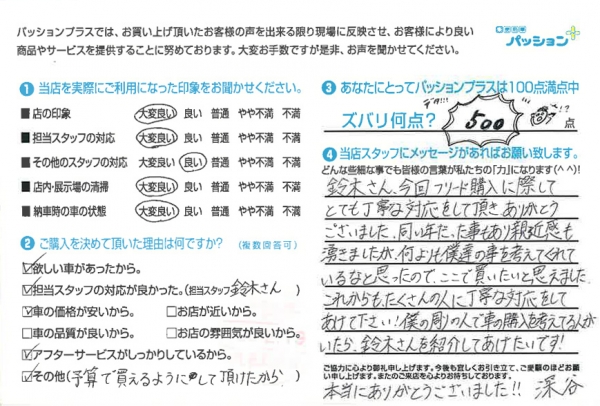 パッションプラスでは、お買い上げ頂いたお客様の声を出来る限り現場に反映させ、お客様により良い
商品やサービスを提供することに努めております。大変お手数ですが是非、お声を聞かせてください。
パッション
1 当店を実際にご利用になった印象をお聞かせください。
■ 店の印象 大変良い 良い 普通 やや不満 不満
■ 担当スタッフの対応 大変良い 良い 普通 やや不満 不満
■ その他のスタッフの対応 大変良い 良い 普通 やや不満 不満
■ 店内・展示場の清掃 大変良い 良い 普通 やや不満 不満
■ 納車時の車の状態 大変良い 良い 普通 やや不満 不満
2 ご購入を決めて頂いた理由は何ですか？ （複数回答可）
☑欲しい車があったから。
☑担当スタッフの対応が良かった。(担当スタッフ 鈴木さん )
☑車の価格が安いから。 □お店が近いから。
□車の品質が良いから。 □お店の雰囲気が良いから。
☑アフターサービスがしっかりしているから。
☑その他(予算で買えるように して頂けたから )
3 あなたにとってパッションプラスは100点満点中
ズバリ何点？ 500 点
4 当店スタッフにメッセージがあればお願い致します。
どんな些細な事でも皆様の言葉が私たちの「力」になります(^^)!
鈴木さん、今回フリード購入に際して
とても丁寧な対応をして頂きありがとう
ございました。同い年だった事もあり親近感も
湧きましたが、何よりも僕達の事を考えてくれて
いるなと思ったので、ここで買いたいと思えました。
これからもたくさんの人に丁寧な対応をして
あげて下さい！僕の周りの人で車の購入を考えてる人が
いたら、鈴木さんを紹介してあげたいです！
ご協力に心より御礼申し上げます。今後も宜しくお引き立て、ご愛顧のほどお願
い申し上げます。またのご来店を心よりお待ちしております。
本当にありがとうございました!! 深谷